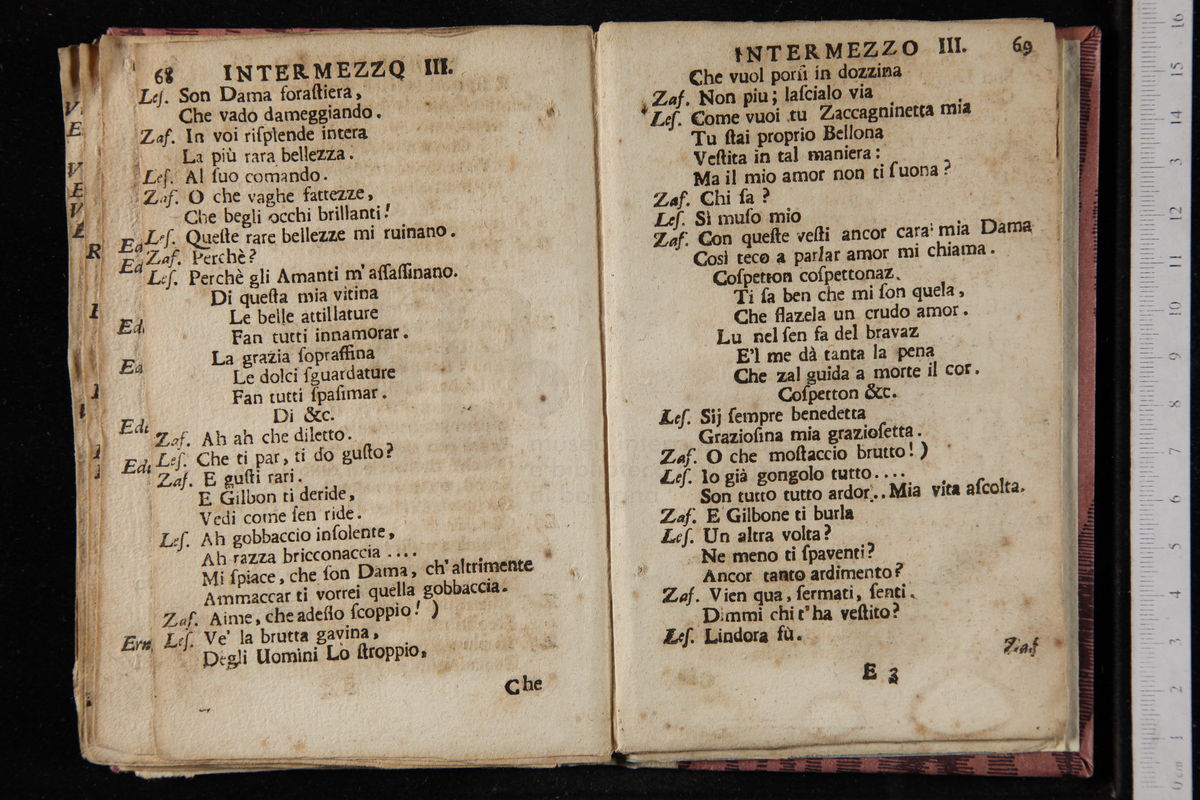 68 INTERMEZZO III.
Leſ. Son Dama foraſtiera,
Che vado dameggiando.
Zaf. In voi riſplende intera
La più rara bellezza.
Leſ. Al ſuo comando.
Zaf. O che vaghe fattezze,
Che begli occhi brillanti!
Leſ. Queſte rare bellezze mi ruinano.
Zaf. Perchè?
Leſ. Perchè gli Amanti m'aſſaſſinano.
Di queſta mia vitina
Le belle attillature
Fan tutti innamorar.
La grazia ſopraffina
Le dolci ſguardature
Fan tutti ſpaſimar.
Di &c.
Zaf. Ah ah che diletto.
Leſ. Che ti par, ti do guſto?
Zaf. E guſti rari.
E Gilbon ti deride,
Vedi come ſen ride.
Leſ. Ah gobbaccio inſolente,
Ah razza bricconaccia ....
Mi ſpiace, che ſon Dama, ch'altrimente
Ammaccar ti vorrei quella gobbaccia.
Zaf. Aime, che adeſſo ſcoppio! )
Leſ. Ve' la brutta gavina,
Degli Uomini Lo ſtroppio,
Che
INTERMEZZO III. 69
Che vuol porſi in dozzina
Zaf. Non piu; laſcialo via
Leſ. Come vuoi tu Zaccagninetta mia
Tu ſtai proprio Bellona
Veſtita in tal maniera:
Ma il mio amor non ti ſuona?
Zaf. Chi ſa?
Leſ. Sì muſo mio
Zaf. Con queſte veſti ancor cara mia Dama
Così teco a parlar amor mi chiama.
Coſpetton coſpettonaz.
Ti ſa ben che mi ſon quela,
Che flazela un crudo amor.
Lu nel ſen fa del bravaz
E'l me dà tanta la pena
Che zal guida a morte il cor.
Coſpetton &c.
Leſ. Sij ſempre benedetta
Grazioſina mia grazioſetta.
Zaf. O che moſtaccio brutto! )
Leſ. Io già gongolo tutto....
Son tutto tutto ardor... Mia vita aſcolta.
Zaf. E Gilbone ti burla
Leſ. Un altra volta?
Ne meno ti ſpaventi?
Ancor tanto ardimento?
Zaf. Vien qua, fermati, ſenti.
Dimmi chi t'ha veſtito?
Leſ. Lindora fù.
E 3
Zaf